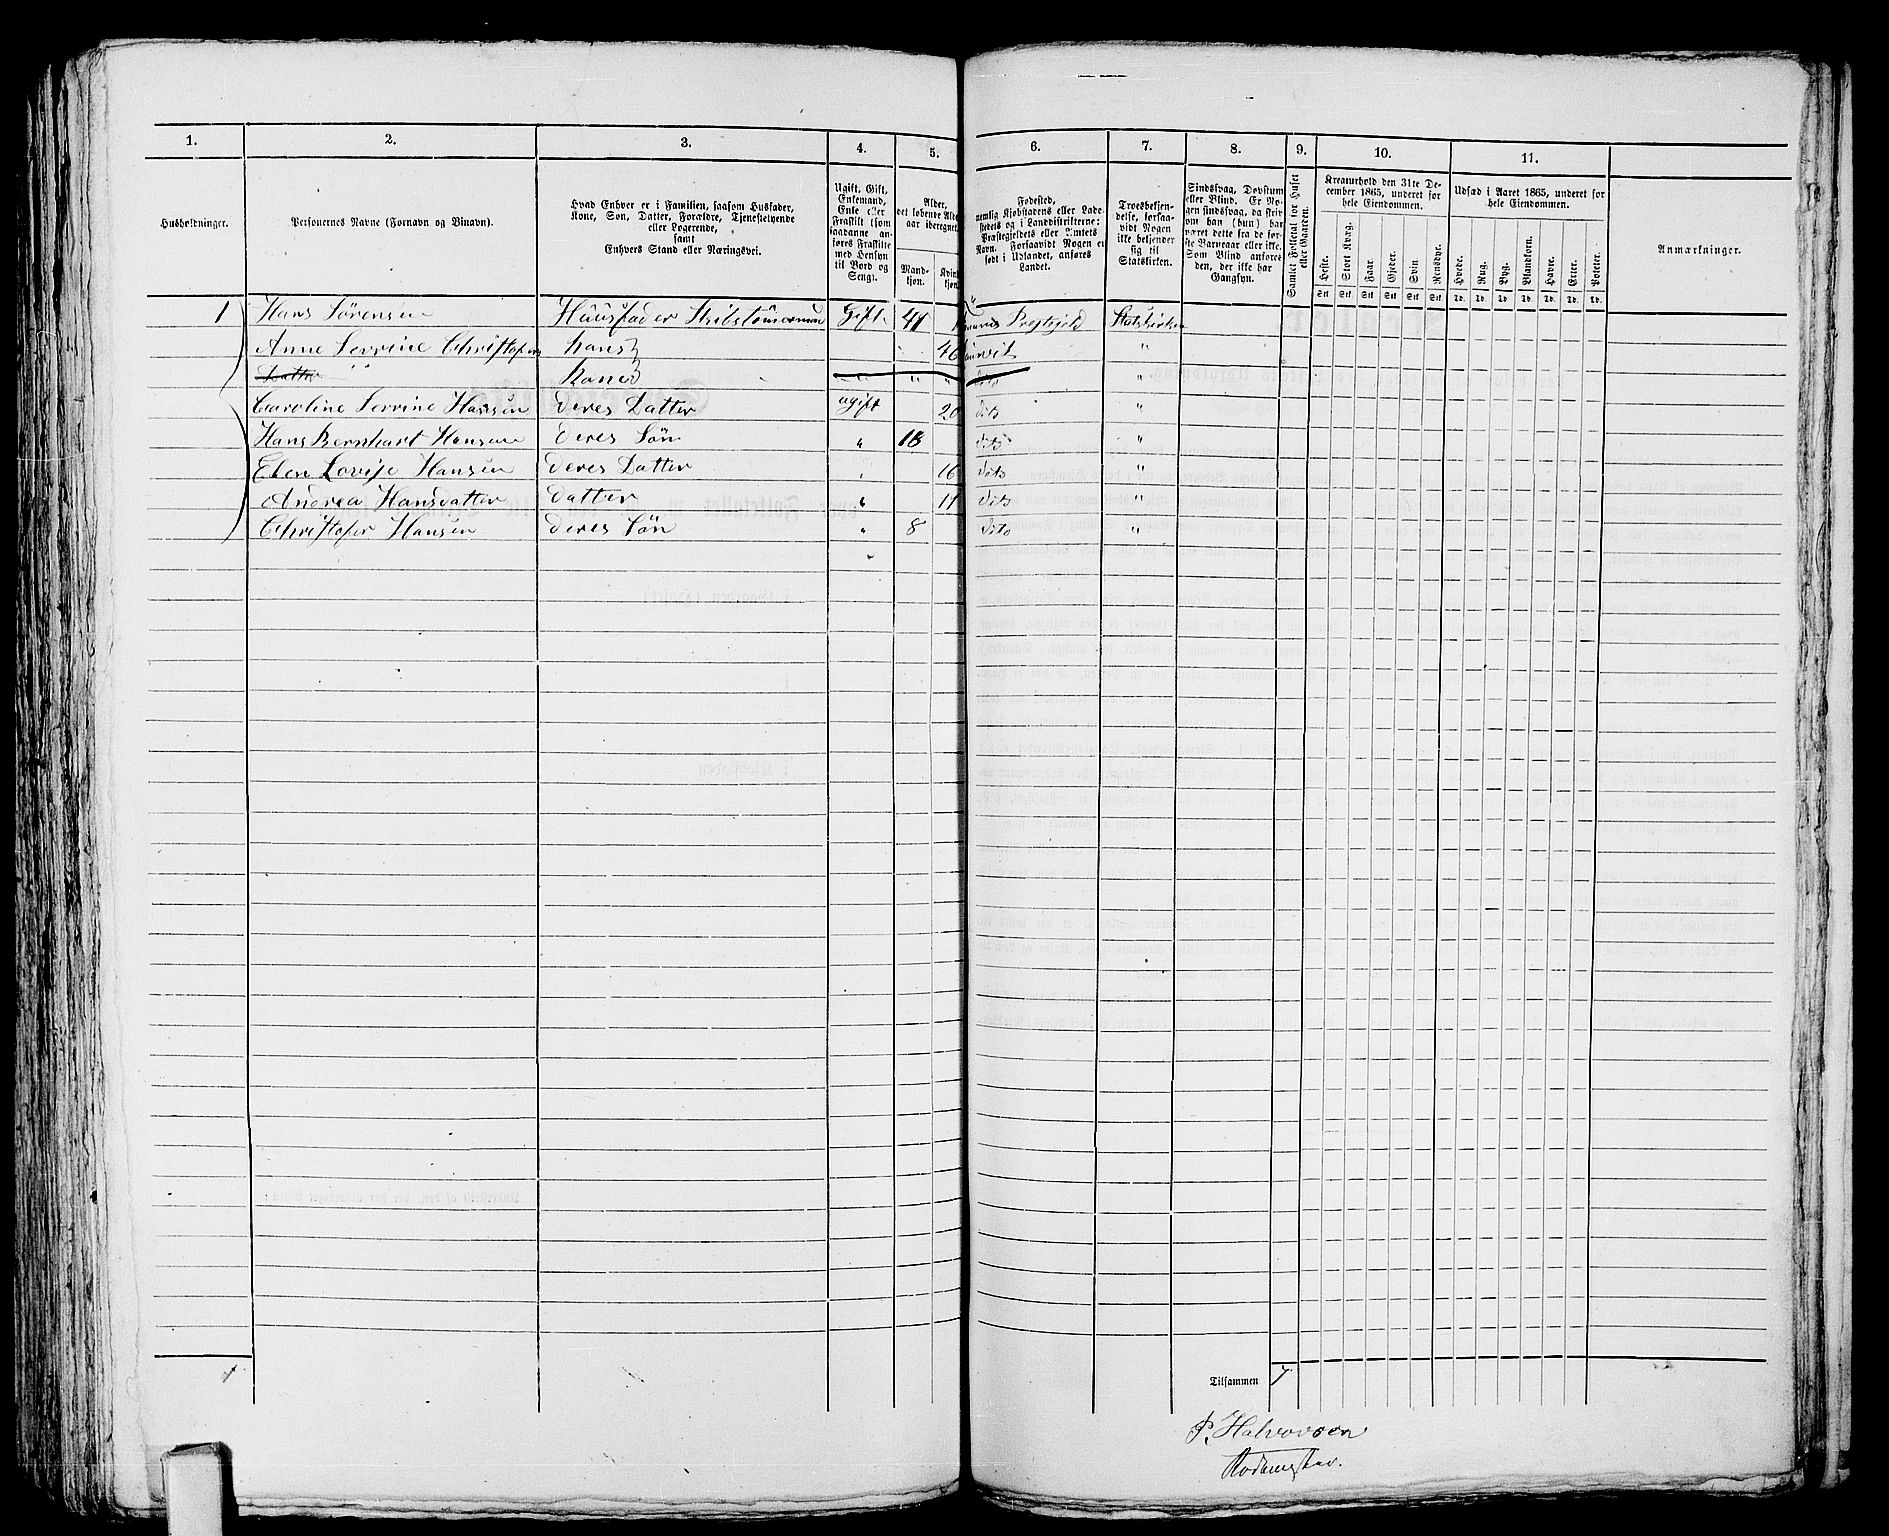 1. 2. 3. 4. 5. 6. 7. 8. 9. 10. 11.
Husholdninger.
Personernes Navne (Fornavn og Binavn).
Hvad Enhver er i Familien, saasom Husfader,
Kone, Søn, Datter, Forældre, Tjenestetyende
eller Logerende,
samt
Enhvers Stand eller Næringsvei.
Ugift, Gift,
Enkemand,
Enke eller
Fraskilt (som
saadanne an-
føres Fraskilte
med Hensyn
til Bord og
Seng).
Alder,
det løbende Alders-
aar iberegnet.
Mand-
kjøn.
Kvin-
kjøn.
Fødested,
nemlig Kjøbstadens eller Lade-
stedets og i Landdistrikterne:
Præstegjeldets eller Amtets
Navn. Forsaavidt Nogen er
født i Udlandet, anføres
Landet.
Troesbekjen-
delse, forsaa-
vidt Nogen
ikke bekjender
sig til
Statskirken.
Sindssvag, Døvstum
eller Blind. Er No-
gen sindssvag, da skri-
ves om han (hun) har
været dette fra de før-
ste Barneaar eller ikke.
Som Blind anføres
den, der ikke har
Gangsyn.
Samlet Folketal for Huset
eller Gaarden.
Kreaturhold den 31te De-
cember 1865, underet for
hele Eiendommen.
Heste. Stort Kvæg. Faar. Gjeder. Svin. Rensdyr.
Stk Stk Stk Stk Stk Stk
Udsæd i Aaret 1865, underet for
hele Eiendommen.
Hvede. Rug. Byg. Blandkorn. Havre. Erter. Poteter.
Td. Td. Td. Td. Td. Td. Td.
Anmærkninger.
1 Hans Sørensen Huusfader Skibstømermand Gift 41 Præstegjeld Statskirken
Anne Serrine Christofers hans 46 "
Datter " " Kone " " dito "
Caroline Serrine Hansen deres Datter ugift 20 dito "
Hans Bernhart Hansen deres Søn " 18 dito "
Elen Lovise Hansen deres Datter " 16 dito "
Andrea Hansdatter datter " 11 dito "
Christofer Hansen deres Søn " 8 dito "
"
1
Tilsammen 7
P. Halvorsen